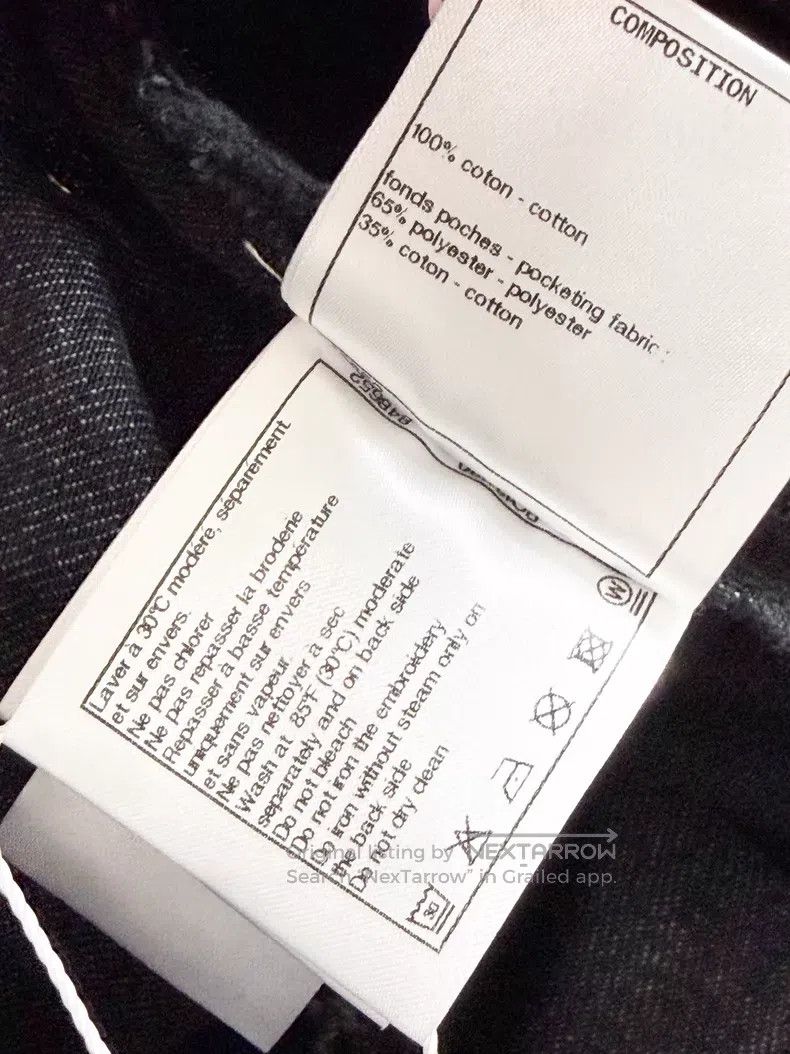 COMPOSITION
100% coton - cotton
fonds poches - pocketing fabric :
65% polyester - polyester
35% coton - cotton
848652
Laver à 30°C modéré, séparément
et sur envers.
Ne pas chlorer
Ne pas repasser la broderie
Repasser à basse température
uniquement sur envers
et sans vapeur.
Ne pas nettoyer à sec
Wash at 85°F (30°C) moderate
separately and on back side
Do not bleach
Do not iron the embroidery
Do iron without steam only on
the back side
Do not dry clean
M
30
original listing by NEXTARROW
Search "NexTarrow" in Grailed app.